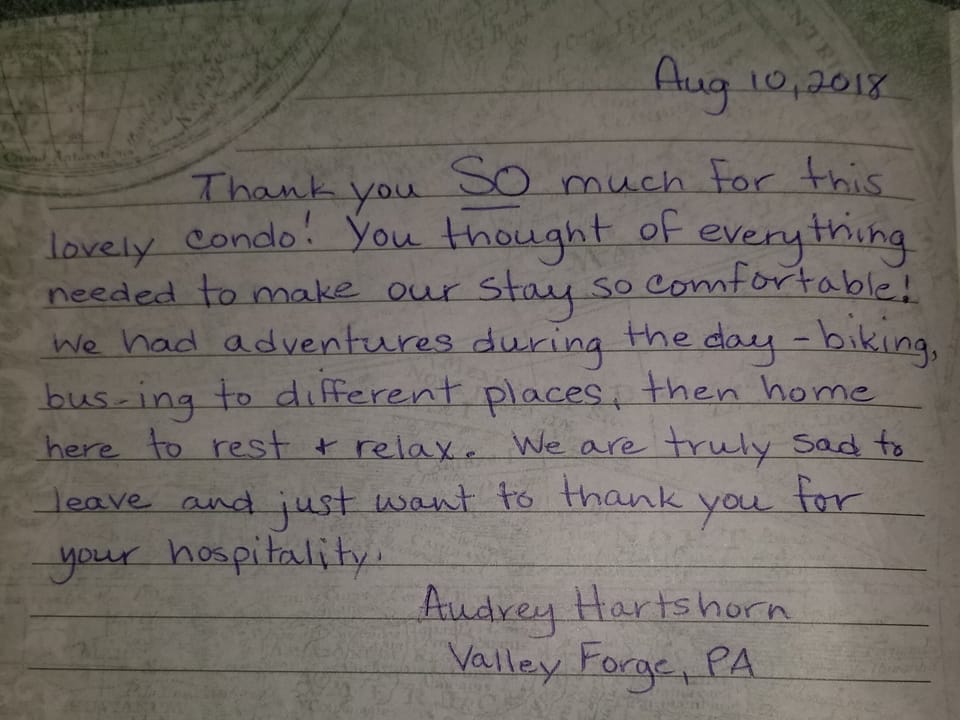 Aug 10, 2018
Thank you SO much for this
lovely condo! You thought of everything
needed to make our stay so comfortable!
We had adventures during the day - biking,
bus-ing to different places, then home
here to rest + relax. We are truly sad to
leave and just want to thank you for
your hospitality.
Audrey Hartshorn
Valley Forge, PA